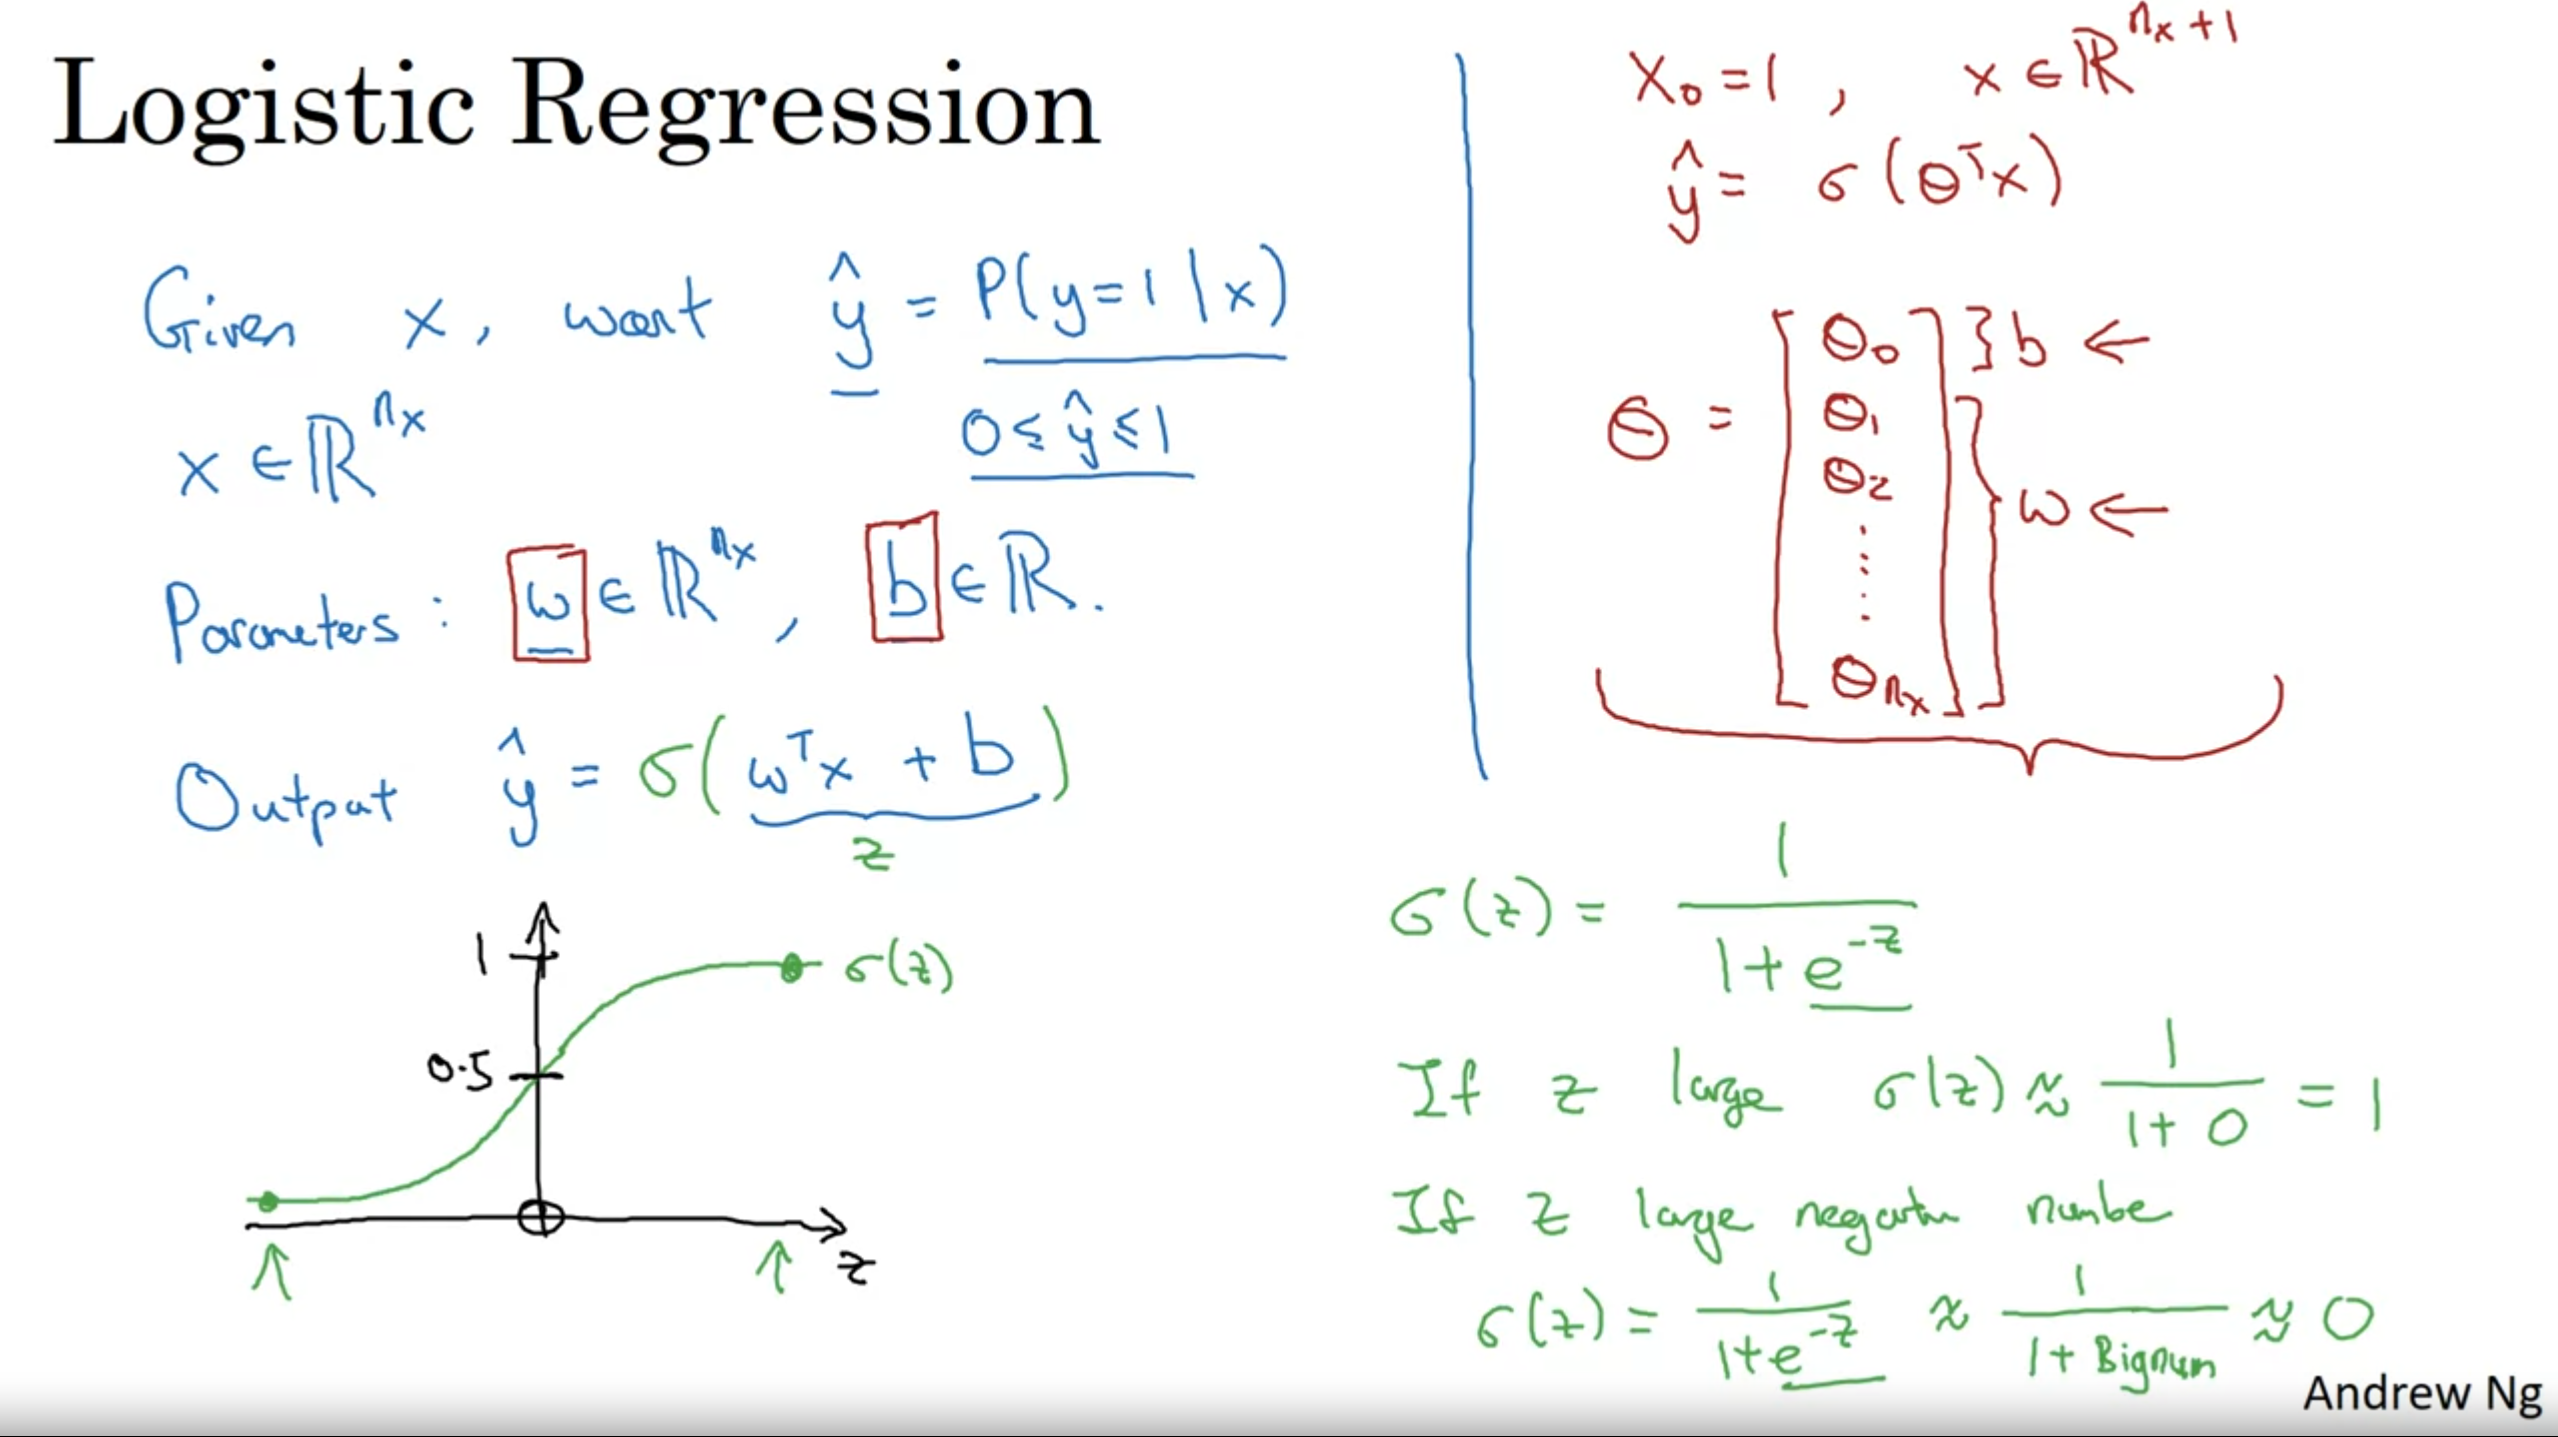 Logistic Regression
Given x, want ŷ = P(y=1|x)
x ∈ ℝ^nx
0 ≤ ŷ ≤ 1
Parameters: w ∈ ℝ^nx, b ∈ ℝ.
Output ŷ = σ(wᵀx + b)
z
1
0.5
σ(z)
z
x₀ = 1, x ∈ ℝ^nx+1
ŷ = σ(θᵀx)
θ = [θ₀ θ₁ θ₂ ⋮ θnx]
} b ←
} w ←
σ(z) = 1/(1+e^-z)
If z large σ(z) ≈ 1/(1+0) = 1
If z large negative number
σ(z) = 1/(1+e^-z) ≈ 1/(1+Bignum) ≈ 0
Andrew Ng